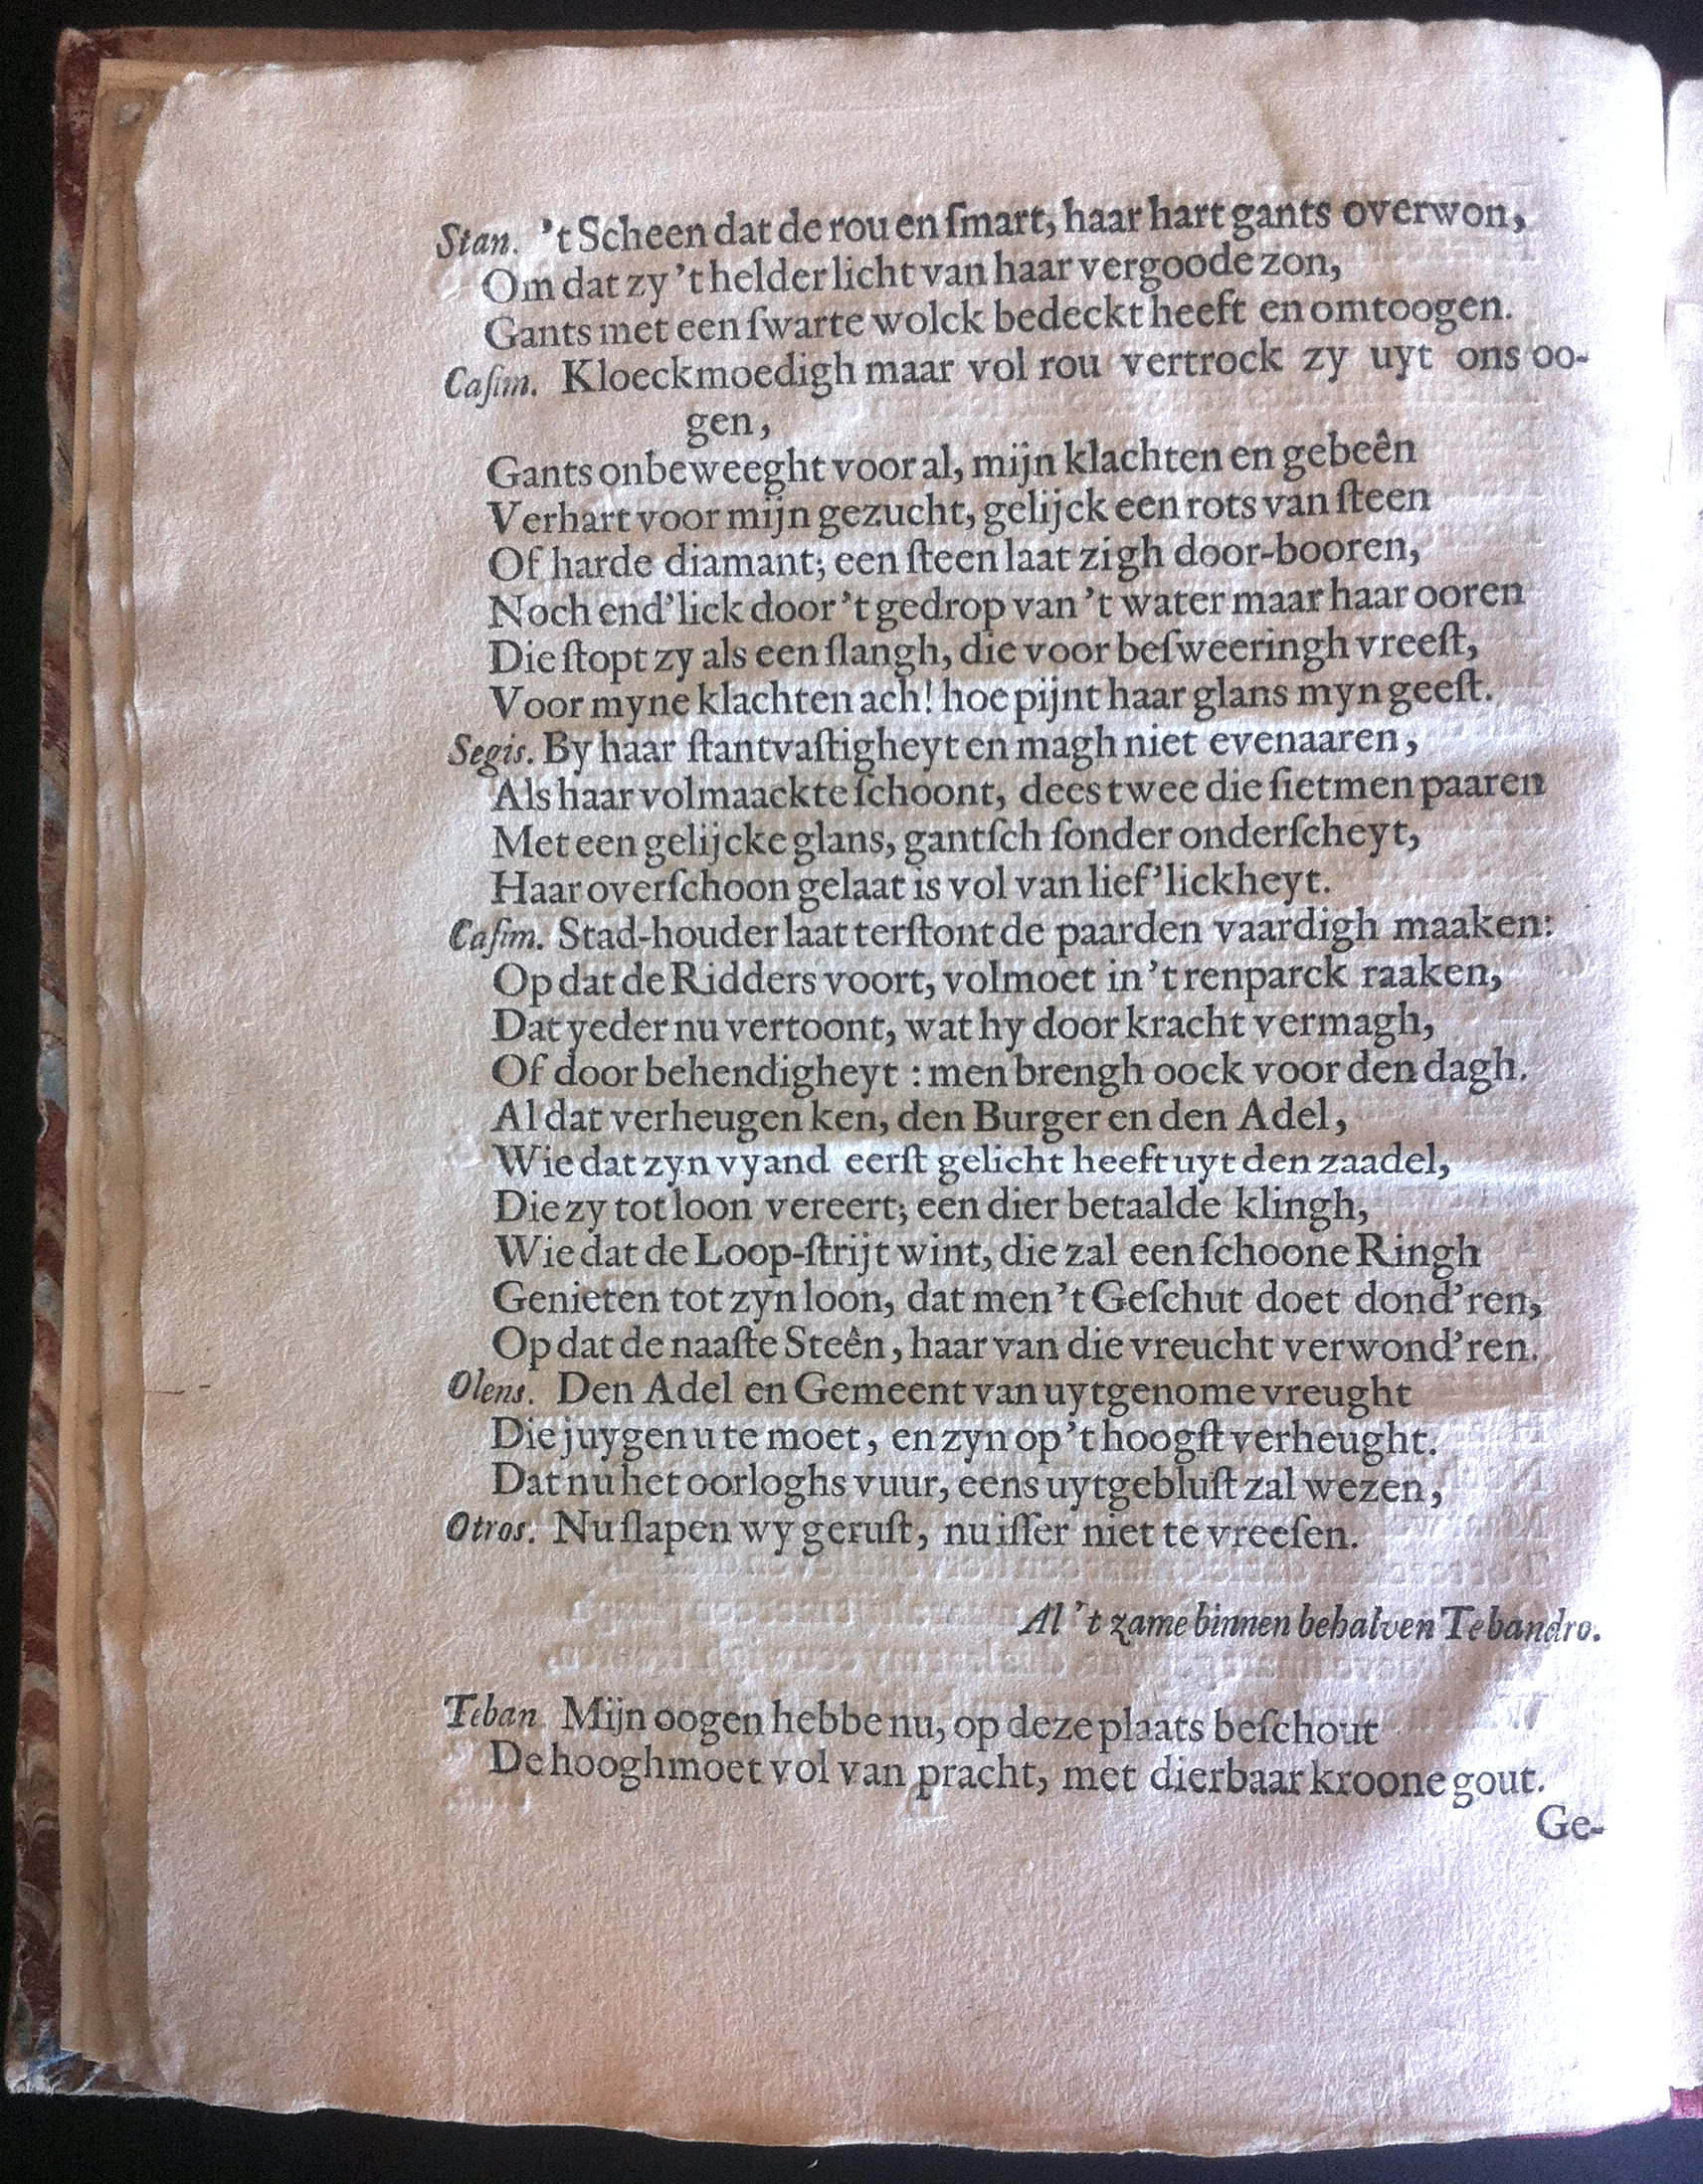 Stan. 't Scheen dat de rou en ſmart, haar hart gants overwon,
Om dat zy 't helder licht van haar vergoode zon,
Gants met een ſwarte wolck bedeckt heeft en omtoogen.
Caſim. Kloeckmoedigh maar vol rou vertrock zy uyt ons oo-
gen,
Gants onbeweeght voor al, mijn klachten en gebeên
Verhart voor mijn gezucht, gelijck een rots van ſteen
Of harde diamant; een ſteen laat zigh door-booren,
Noch end'lick door 't gedrop van 't water maar haar ooren
Die ſtopt zy als een ſlangh, die voor beſweeringh vreeſt,
Voor myne klachten ach! hoe pijnt haar glans myn geeſt.
Segis. By haar ſtantvaſtigheyt en magh niet evenaaren,
Als haar volmaackte ſchoont, dees twee die ſietmen paaren
Met een gelijcke glans, gantſch ſonder onderſcheyt,
Haar overſchoon gelaat is vol van lief'lickheyt.
Caſim. Stad-houder laat terſtont de paarden vaardigh maaken:
Op dat de Ridders voort, volmoet in 't renparck raaken,
Dat yeder nu vertoont, wat hy door kracht vermagh,
Of door behendigheyt : men brengh oock voor den dagh.
Al dat verheugen ken, den Burger en den Adel,
Wie dat zyn vyand eerſt gelicht heeft uyt den zaadel,
Die zy tot loon vereert; een dier betaalde klingh,
Wie dat de Loop-ſtrijt wint, die zal een ſchoone Ringh
Genieten tot zyn loon, dat men 't Geſchut doet dond'ren,
Op dat de naaſte Steên, haar van die vreucht verwond'ren.
Olens. Den Adel en Gemeent van uytgenome vreught
Die juygen u te moet, en zyn op 't hoogſt verheught.
Dat nu het oorloghs vuur, eens uytgebluſt zal wezen,
Otros. Nu ſlapen wy geruſt, nu iſſer niet te vreeſen.
Al 't zame binnen behalven Tebandro.
Teban. Mijn oogen hebbe nu, op deze plaats beſchout
De hooghmoet vol van pracht, met dierbaar kroone gout.
Ge-